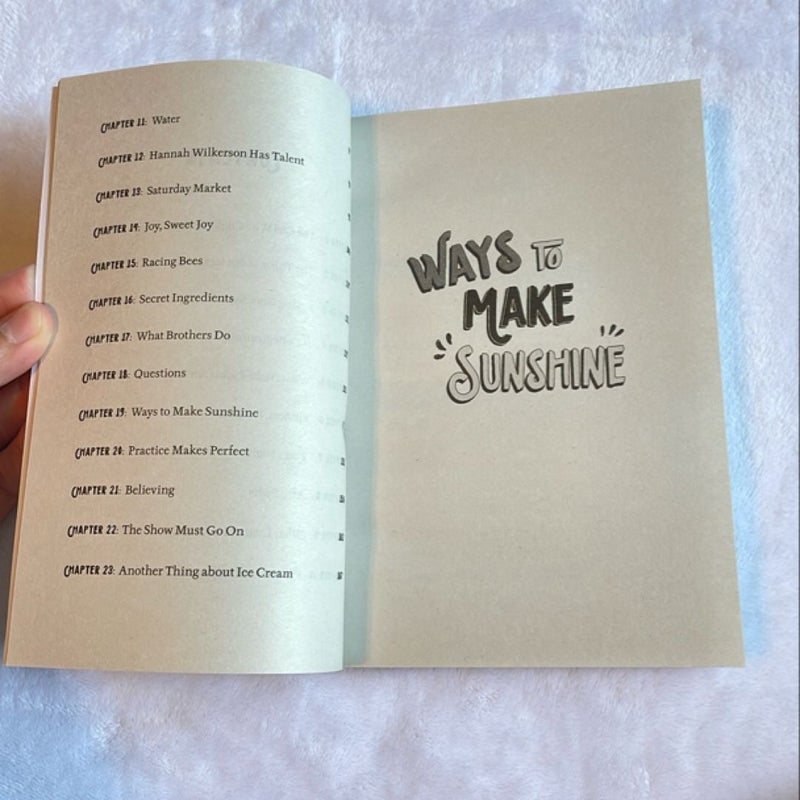 CHAPTER 11: Water
CHAPTER 12: Hannah Wilkerson Has Talent
CHAPTER 13: Saturday Market
CHAPTER 14: Joy, Sweet Joy
CHAPTER 15: Racing Bees
CHAPTER 16: Secret Ingredients
CHAPTER 17: What Brothers Do
CHAPTER 18: Questions
CHAPTER 19: Ways to Make Sunshine
CHAPTER 20: Practice Makes Perfect
CHAPTER 21: Believing
CHAPTER 22: The Show Must Go On
CHAPTER 23: Another Thing about Ice Cream
WAYS TO
MAKE
SUNSHINE